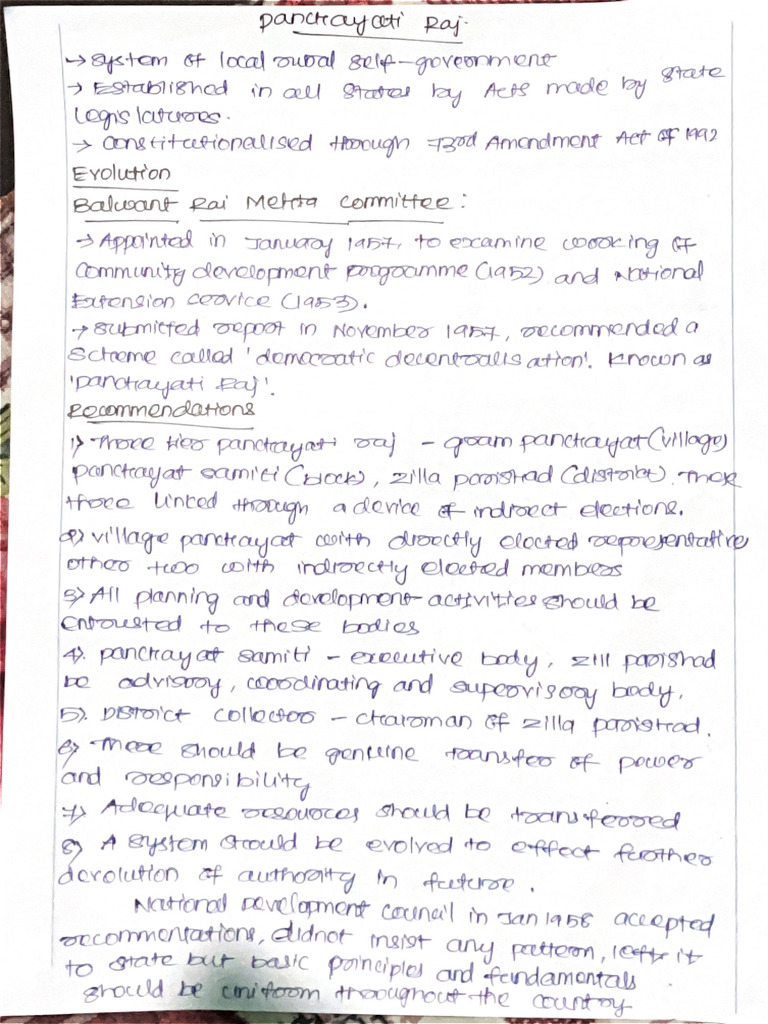 Panchayati Raj.
→ System of local rural self-government
→ Established in all states by Acts made by state
legislatures.
→ Constitutionalised through 73rd Amendment Act of 1992
Evolution
Balwant Rai Mehta Committee:
→ Appointed in January 1957, to examine working of
Community development programme (1952) and National
Extension Service (1953).
→ Submitted report in November 1957, recommended a
Scheme called 'democratic decentralisation'. Known as
'panchayati Raj'.
Recommendations
1) Three tier panchayati raj - gram panchayat (village)
panchayat samiti (block), zilla parishad (district). These
three linked through a device of indirect elections.
2) Village panchayat with directly elected representative
other two with indirectly elected members
3) All planning and development activities should be
entrusted to these bodies
4). panchayat samiti - executive body, zill parishad
be advisory, coordinating and supervisory body.
5). District collector - chairman of zilla parishad.
6) There should be genuine transfer of power
and responsibility
7) Adequate resources should be transferred
8) A system should be evolved to effect further
devolution of authority in future.
National Development council in Jan 1958 accepted
recommentations, didnot insist any pattern, left it
to state but basic principles and fundamentals
should be uniform throughout the country